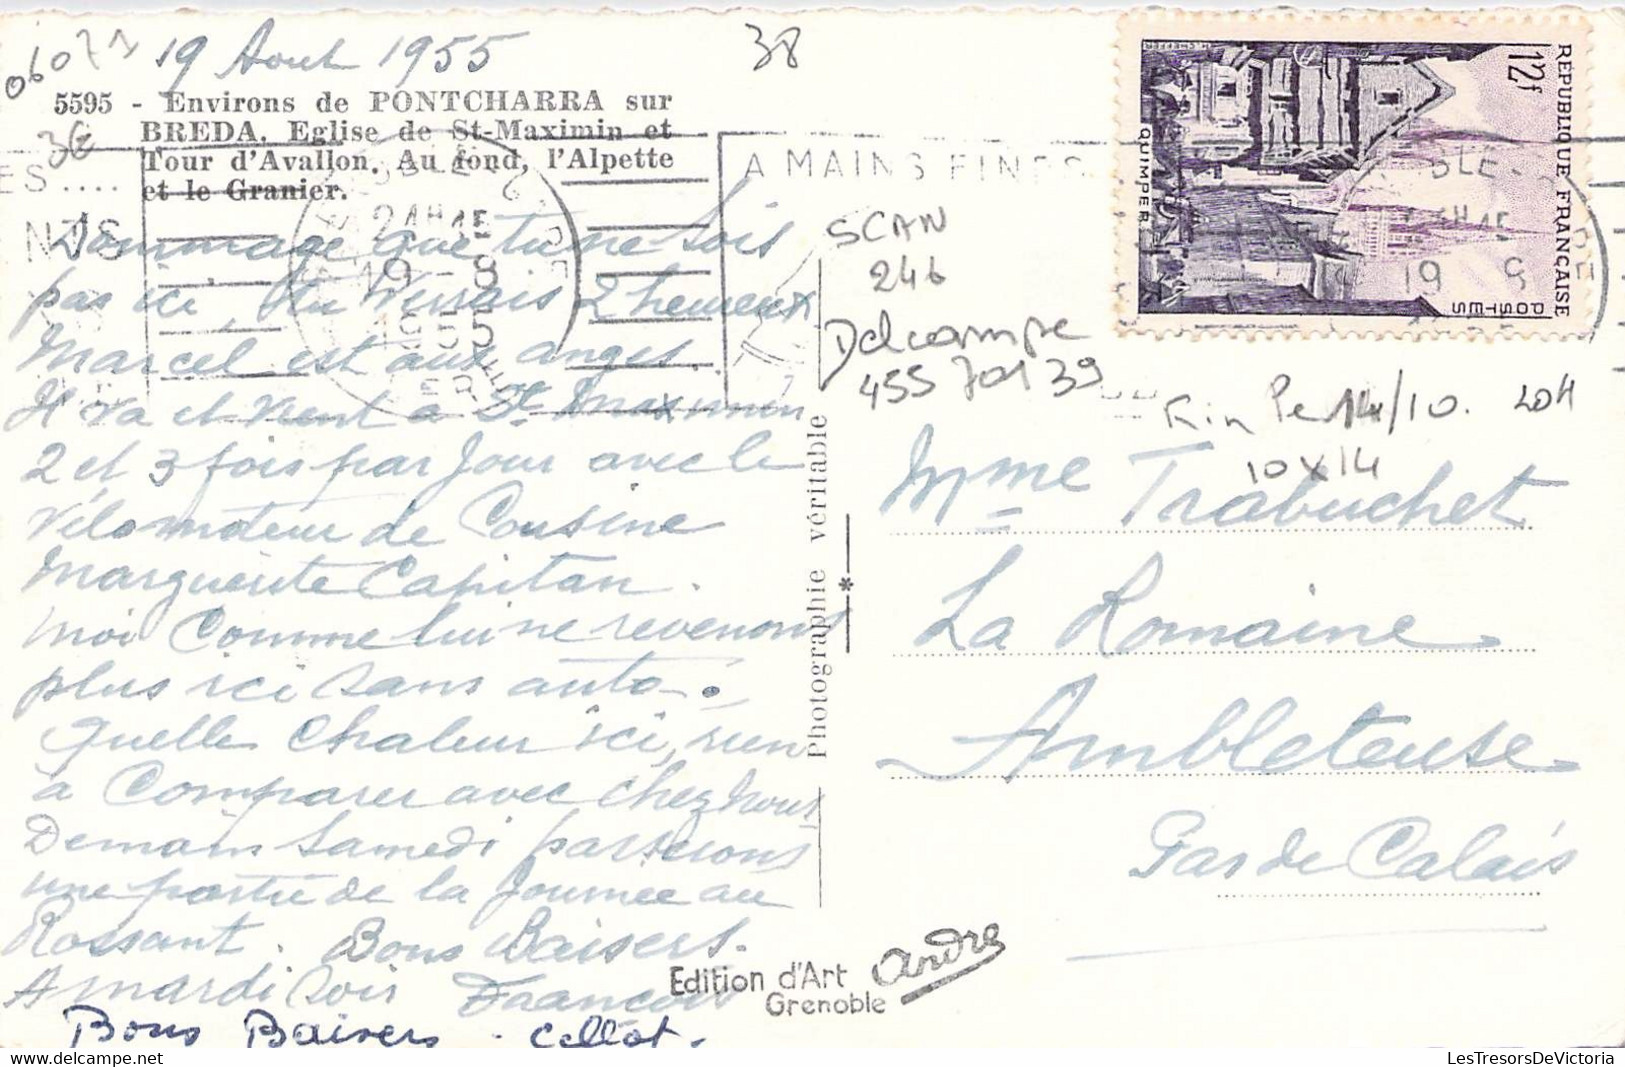 06071
19 Aout 1955
38
5595 - Environs de PONTCHARRA sur
BREDA. Eglise de St-Maximin et
Tour d'Avallon. Au fond, l'Alpette
et le Granier.
3€
ES....
NDS
21H15
19-8
1955
A MAINS FINES
RÉPUBLIQUE FRANÇAISE
12f
POSTES
QUIMPER
SCAN
246
Delcampe
455 701 39
14/10. 20H
10X14
Dommage que tu ne sois
pas ici, tu verrais 2 heureux
Marcel est aux anges.
Il va et vient a St Maximin
2 et 3 fois par Jour avec le
Vélomoteur de Cousine
Marguerite Capitan.
Moi comme lui ne revenons
plus ici sans auto.
Quelle Chaleur ici, rien
à Comparer avec chez nous
Demain Samedi passerons
une partie de la Journee au
Rossant. Bons Baisers.
A mardi soir François
Bons Baisers.
Photographie véritable
Mme Trabuchet
La Romaine
Ambleteuse
Pas de Calais
Edition d'Art André
Grenoble
LesTresorsDeVictoria